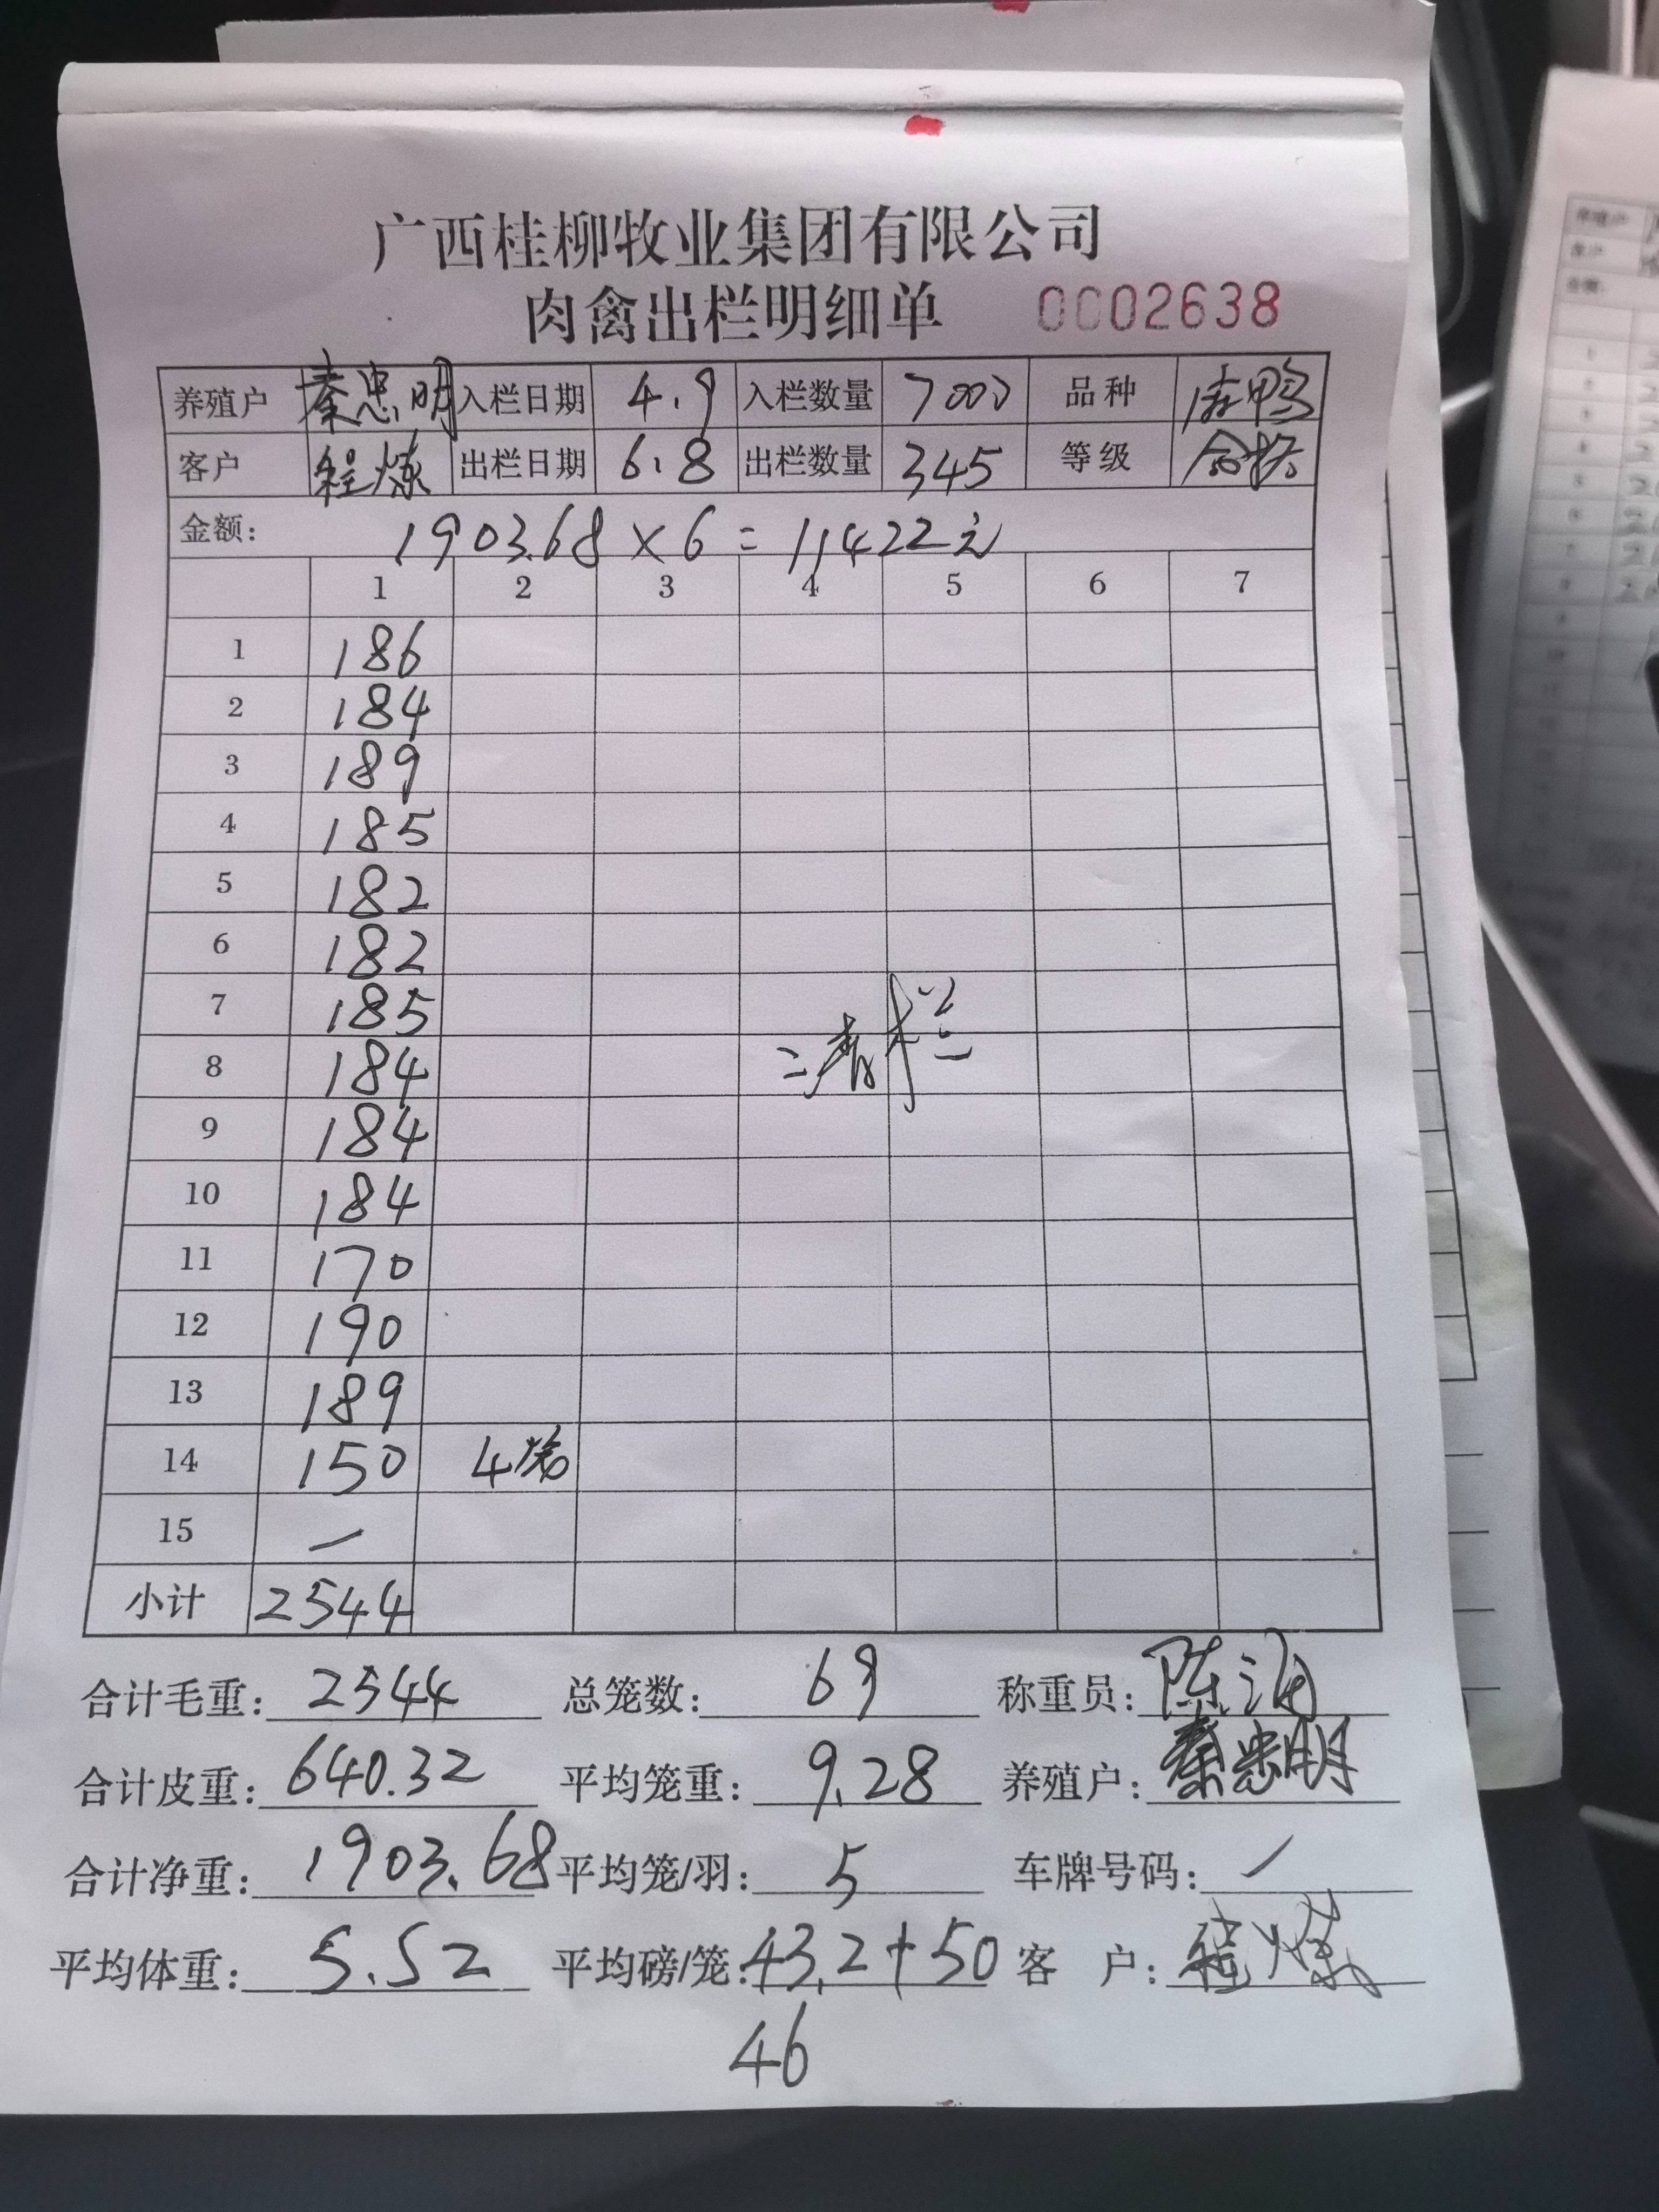 广西桂柳牧业集团有限公司
肉禽出栏明细单 0002638
养殖户 秦忠明 入栏日期 4.9 入栏数量 7000 品种
客户 程炼 出栏日期 6.8 出栏数量 345 等级 合格
金额: 1903.68×6=11422元
1 2 3 4 5 6 7
1 186
2 184
3 189
4 185
5 182
6 182
7 185
8 184
9 184
10 184
11 170
12 190
13 189
14 150 4笼
15 一
清栏
小计 2544
合计毛重: 2544 总笼数: 69 称重员: 陈
合计皮重: 640.32 平均笼重: 9.28 养殖户: 秦忠明
合计净重: 1903.68 平均笼/羽: 5 车牌号码: /
平均体重: 5.52 平均磅/笼: 43.2+50 客 户: 程炼
46